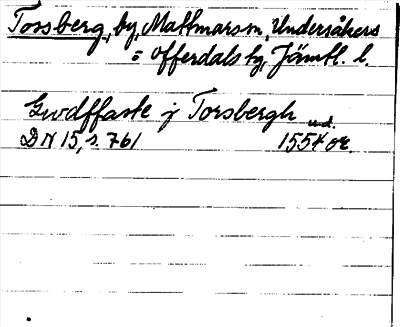 Torsberg, by, Mattmars sn, Undersåkers
o. Offerdals tg, Jämtl. l.
Gvdffaste j Torsbergh
u.d.
DN 15, s. 761 1554 or.